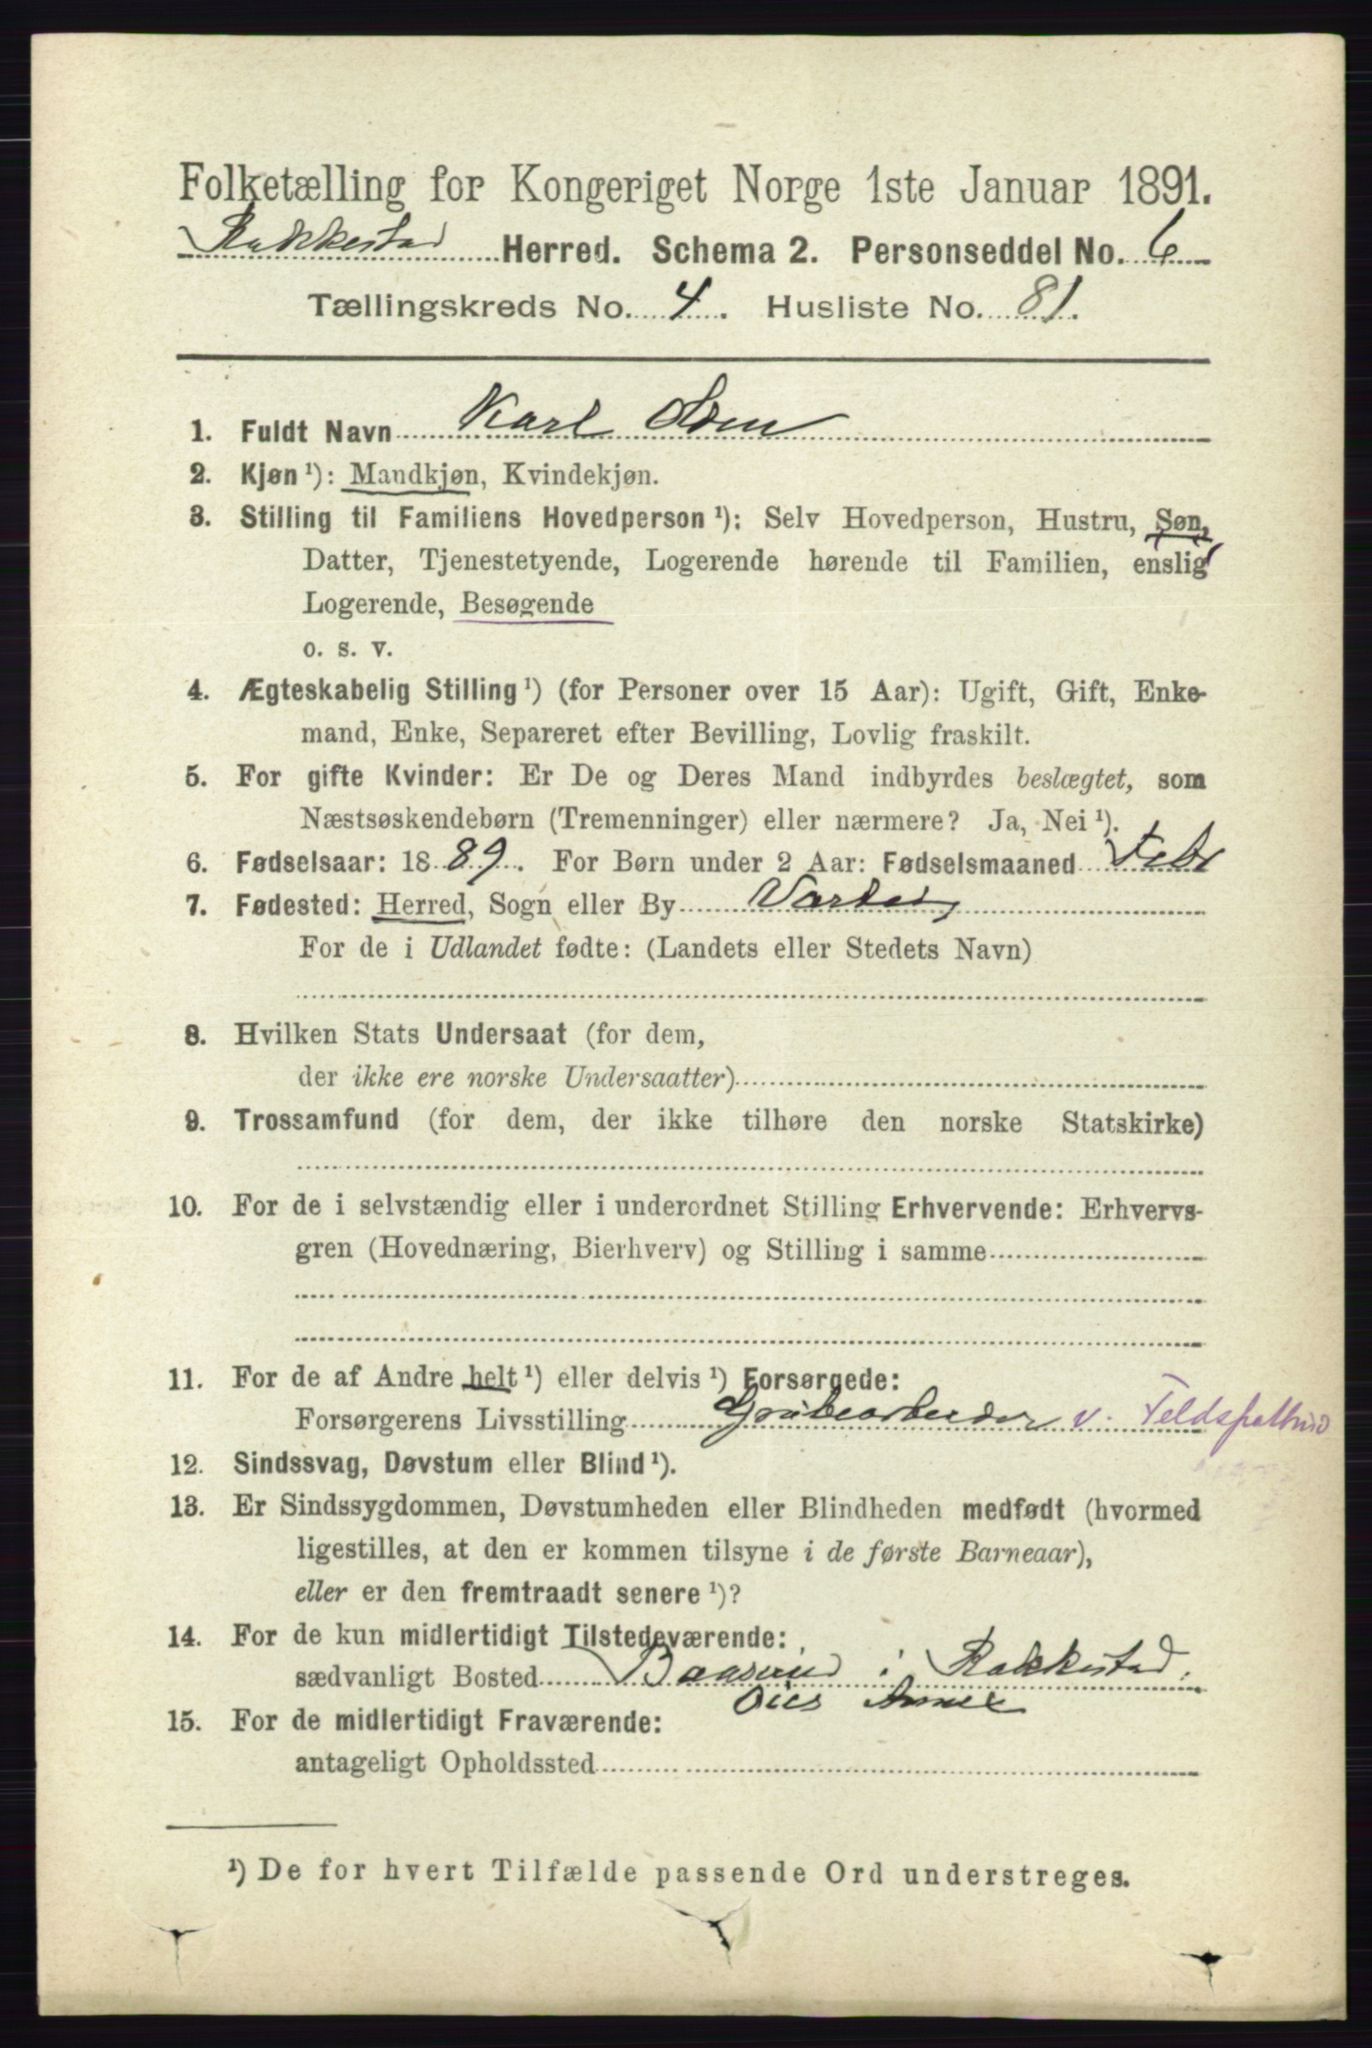 Folketælling for Kongeriget Norge 1ste Januar 1891.
Rakkestad Herred. Schema 2. Personseddel No. 6
Tællingskreds No. 4. Husliste No. 81.
1. Fuldt Navn Karl Olsen
2. Kjøn ¹): Mandkjøn, Kvindekjøn.
3. Stilling til Familiens Hovedperson ¹): Selv Hovedperson, Hustru, Søn,
Datter, Tjenestetyende, Logerende hørende til Familien, enslig
Logerende, Besøgende
o. s. v.
4. Ægteskabelig Stilling ¹) (for Personer over 15 Aar): Ugift, Gift, Enke-
mand, Enke, Separeret efter Bevilling, Lovlig fraskilt.
5. For gifte Kvinder: Er De og Deres Mand indbyrdes beslægtet, som
Næstsøskendebørn (Tremenninger) eller nærmere? Ja, Nei ¹).
6. Fødselsaar: 1889. For Børn under 2 Aar: Fødselsmaaned Febr
7. Fødested: Herred, Sogn eller By Varteig
For de i Udlandet fødte: (Landets eller Stedets Navn)
8. Hvilken Stats Undersaat (for dem,
der ikke ere norske Undersaatter)
9. Trossamfund (for dem, der ikke tilhøre den norske Statskirke)
10. For de i selvstændig eller i underordnet Stilling Erhvervende: Erhvervs-
gren (Hovednæring, Bierhverv) og Stilling i samme
11. For de af Andre helt ¹) eller delvis ¹) Forsørgede:
Forsørgerens Livsstilling Grubearbeider v. Feldspatbrud
12. Sindssvag, Døvstum eller Blind ¹).
13. Er Sindssygdommen, Døvstumheden eller Blindheden medfødt (hvormed
ligestilles, at den er kommen tilsyne i de første Barneaar),
eller er den fremtraadt senere ¹)?
14. For de kun midlertidigt Tilstedeværende:
sædvanligt Bosted Baaserud i Rakkestad,
Os Annex
15. For de midlertidigt Fraværende:
antageligt Opholdssted
¹) De for hvert Tilfælde passende Ord understreges.